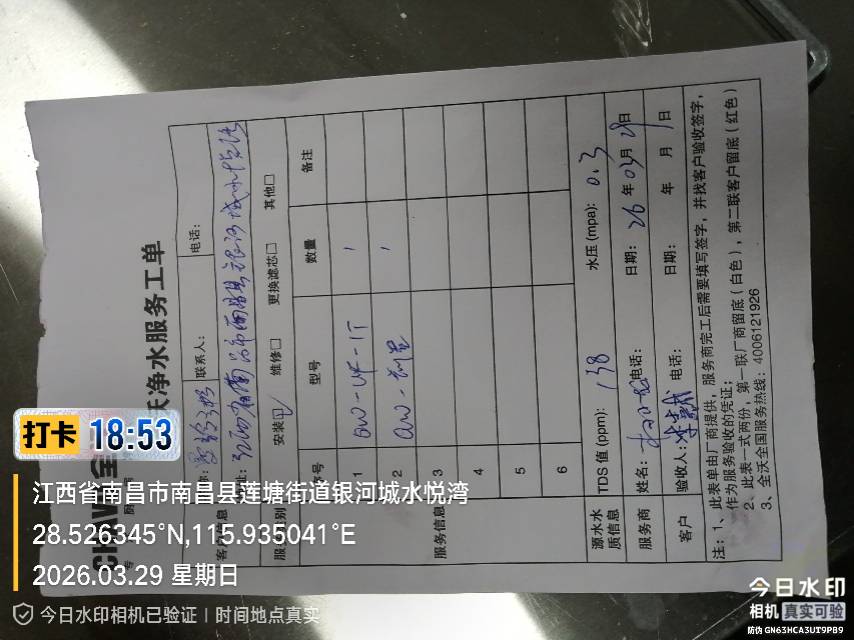 全
沃净水服务工单
联系人:
电话:
江西省南昌市南昌县银河城水悦湾
服务类别
安装☑
维修□
更换滤芯□
其他□
服务信息
序号
型号
数量
备注
1
QW-UF-1T
1
2
QW-前置
1
3
4
5
6
源水水质信息
TDS 值 (ppm): 138
水压 (mpa): 0.3
服务商
姓名:
电话:
日期: 26 年 03 月 29 日
客户
验收人:
电话:
日期: 年 月 日
注: 1、此表单由厂商提供,服务商完工后需要填写签字,并找客户验收签字,
作为服务验收的凭证;
2、此表一式两份,第一联厂商留底(白色),第二联客户留底(红色)
3、全沃全国服务热线: 4006121926
打卡 18:53
江西省南昌市南昌县莲塘街道银河城水悦湾
28.526345°N,115.935041°E
2026.03.29 星期日
今日水印相机已验证 | 时间地点真实
今日水印
相机 真实可验
防伪 GN63HCA3UT9PB9